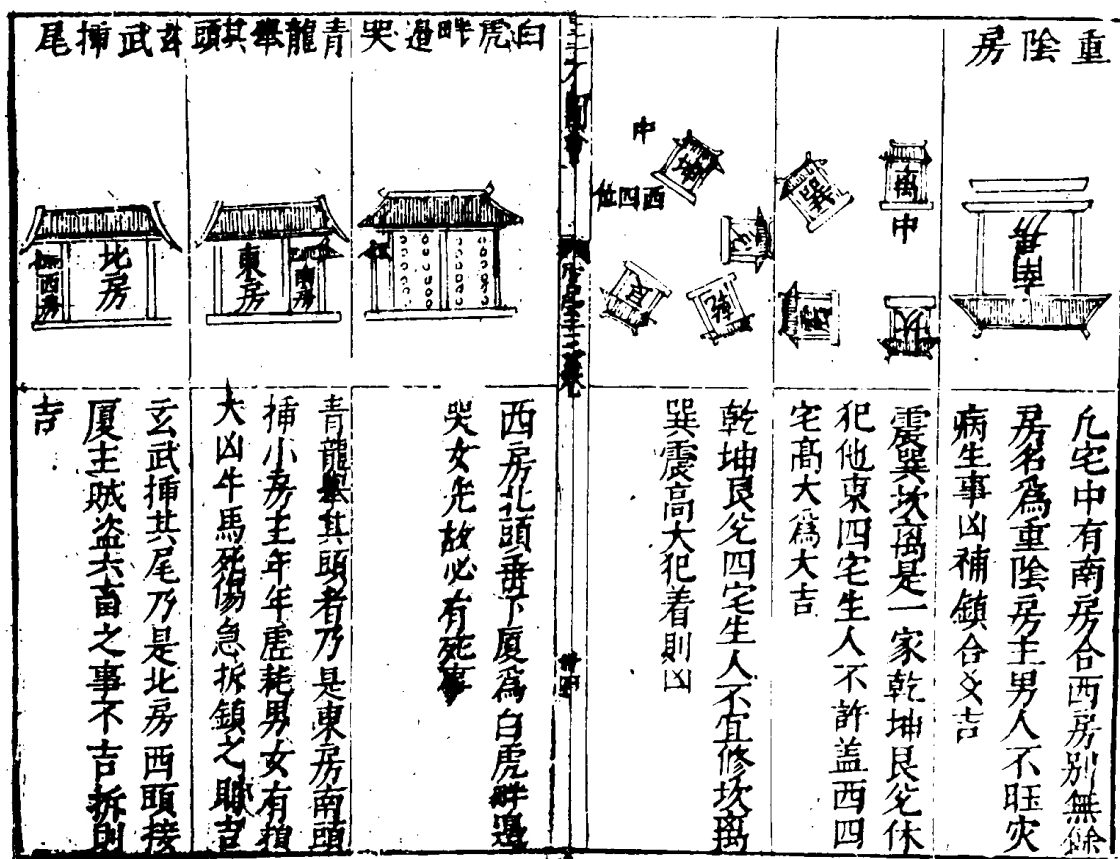 重陰房
南房
凢宅中有南房合西房别無餘
房名爲重陰房主男人不旺灾
病生事凶補鎮合爻吉
離
中
坎
巽
震
震巽坎离是一家乾坤艮兊休
犯他東四宅生人不許盖西四
宅高大爲大吉
中
坤
西四位
兊
乾
艮
乾坤艮兊四宅生人不宜修坎离
巽震高大犯着則凶
三才圖會
白虎畔邉哭
西房北頭垂下厦爲白虎畔邉
哭女先故必有死事
青龍舉其頭
東房
南房
青龍舉其頭者乃是東房南頭
挿小房主年年虚耗男女有損
大凶牛馬死傷急拆鎮之則吉
玄武挿尾
北房
西房
玄武挿其尾乃是北房西頭接
厦主賊盗六畜之事不吉拆則
吉